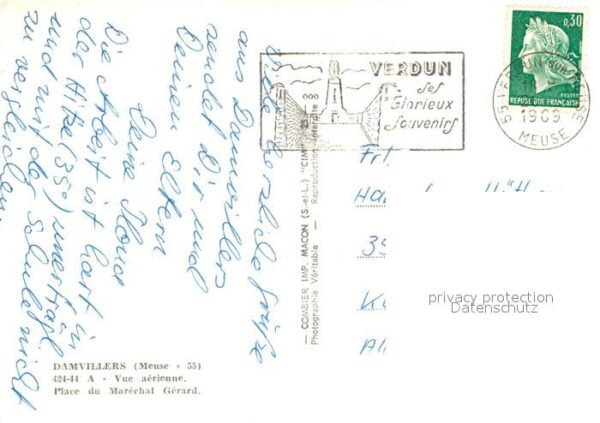 Herzliche Grüße
aus Damvillers
sendet Dir und
Deinen Eltern
Deine
Die Arbeit ist hart in
der Hitze (35°)
und mit der Schule nicht
zu vergleichen.
DAMVILLERS (Meuse - 55)
424-44 A - Vue aérienne.
Place du Maréchal Gérard.
— COMBIER IMP. MACON (S.-et-L.) "CIM" —
Photographie Véritable — Reproduction interdite
VERDUN
Ses
Glorieux
Souvenirs
55 VERDUN-SUR-MEUSE
1969
MEUSE
0,30
POSTES
REPUBLIQUE FRANÇAISE
Frl.
privacy protection
Datenschutz